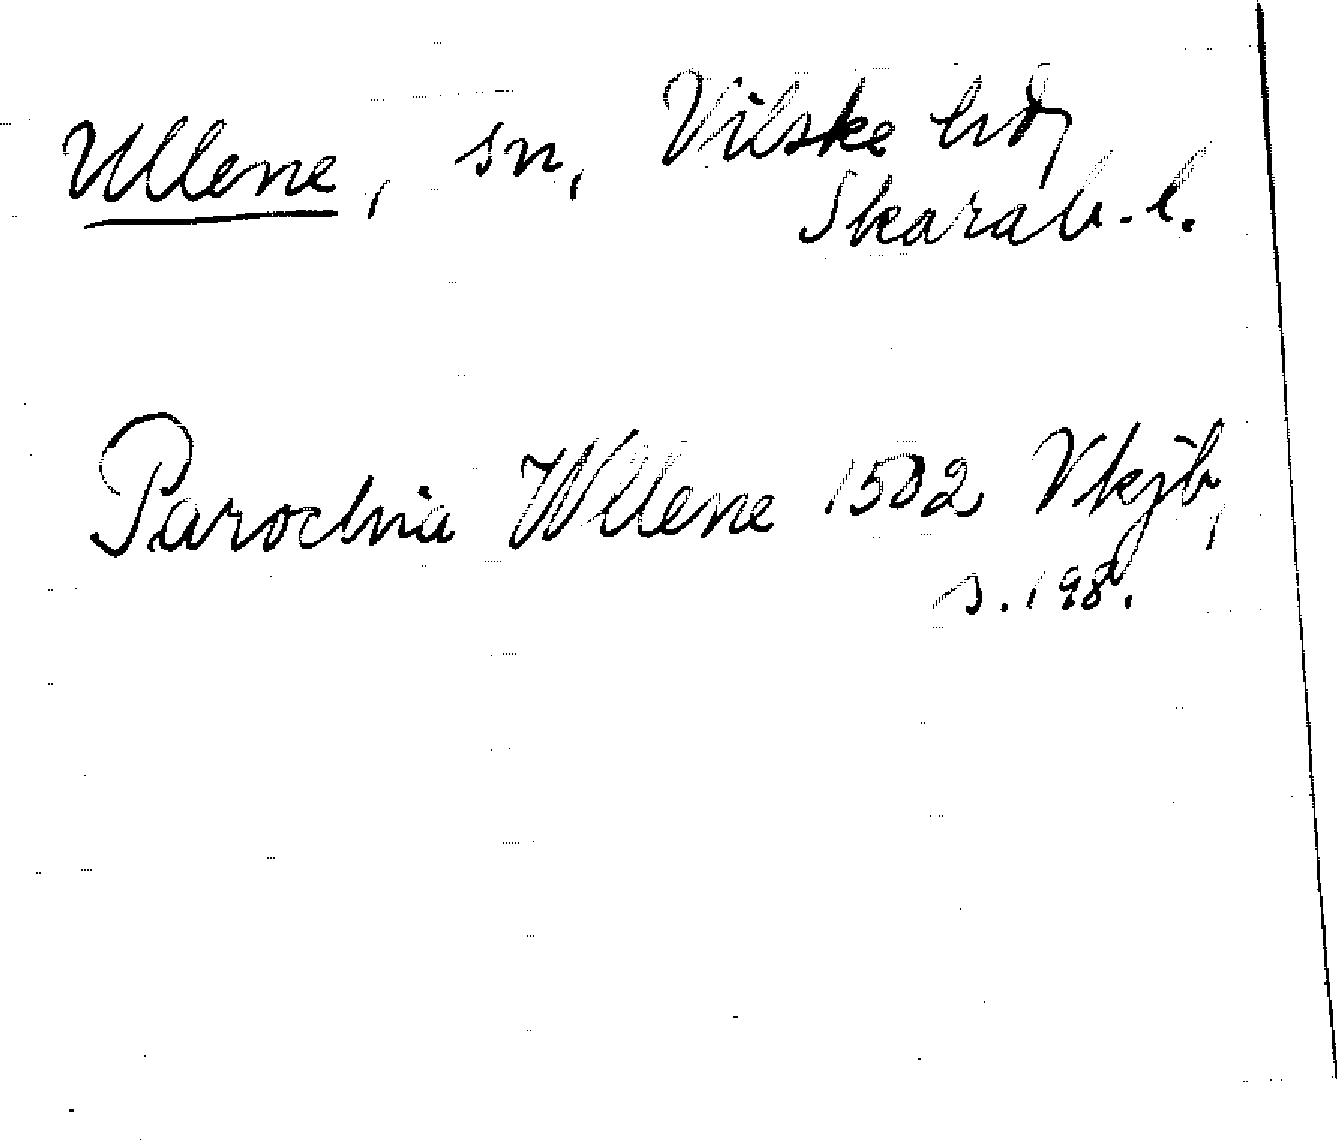 Ullene, sn, Vilske hd,
Skarab. l.
Parochia Wllene 1502 Vkjb,
s. 198.